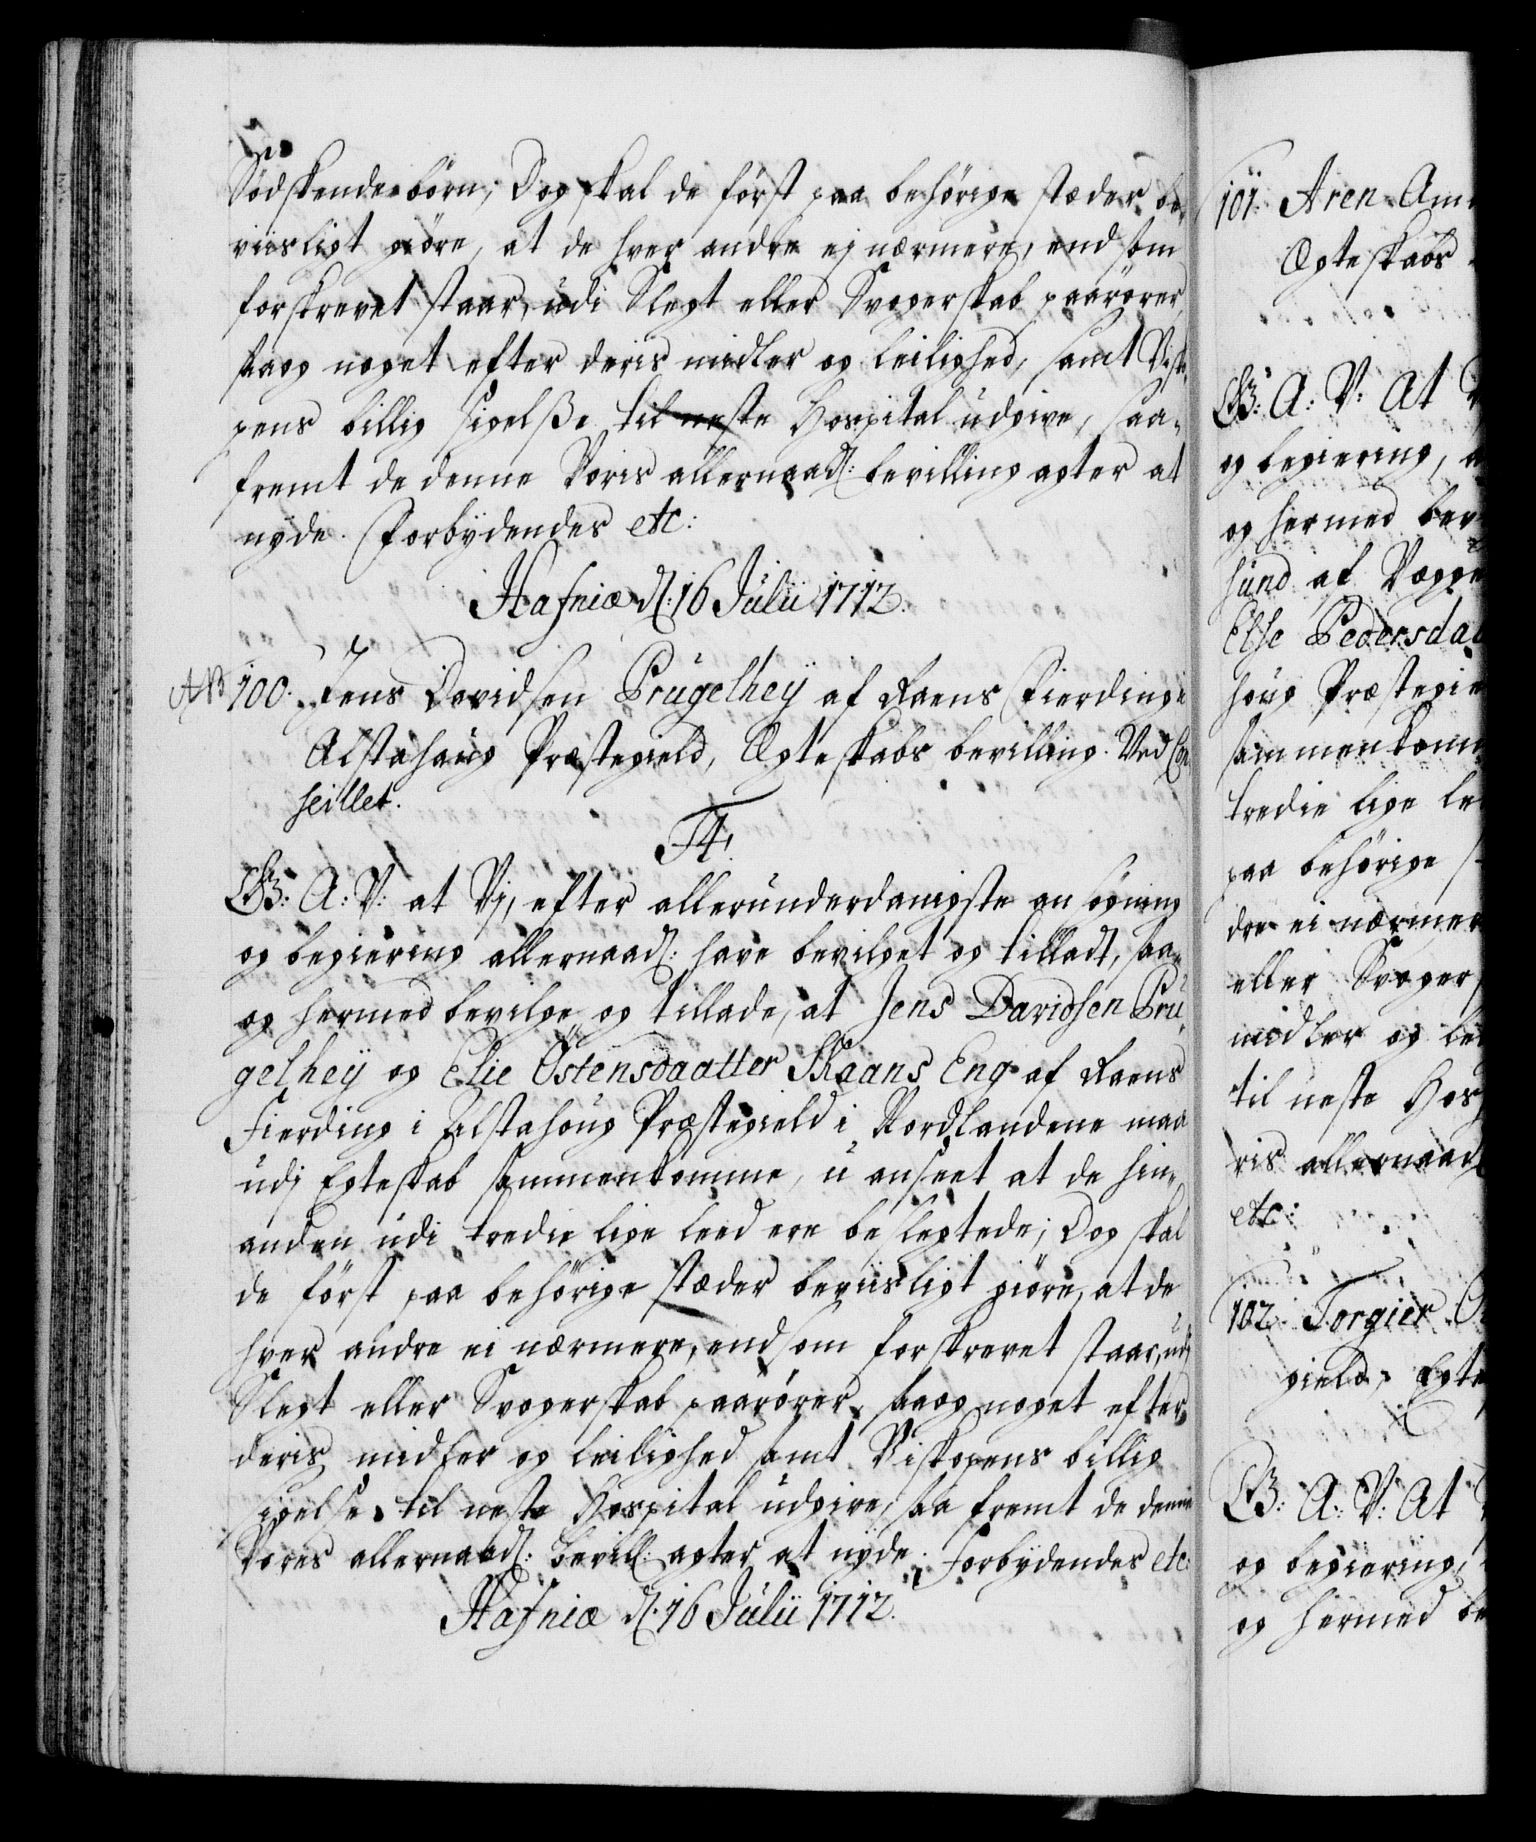 Södskendebörn; Dog skal de först paa behörige stæder be-
viisligt giöre, at de hver andre ej nærmere, end som
forskrevet staar, udi Slegt eller Svogerskab paarörer,
saa og noget efter deris midler og leilighed, samt Bisko-
pens billig sigelsze til neste Hospital udgive, saa-
fremt de denne Voris allernaad: bevilling agter at
nyde. Forbydendes etc:
Hafniæ d: 16 Julii 1712.
NB 100. Jens Davidsen Prügelheÿ af Raens Fierding i
Alstahaug Præstegield, Egteskabs bevilling. Ved Con-
seillet.
F4.
G: A: V: at Vj, efter allerunderdanigste ansögning
og begiering allernaad: have bevilget og tilladt, saa-
og hermed bevilge og tillade, at Jens Davidsen Prü-
gelheÿ og Elie Östensdaatter Skaans Eng af Raens
Fierding i Alstahoug Præstegield i Nordlandene maa
udj Egteskab sammenkomme, uanseet at de hin-
anden udi tredie lige leed ere beslegtede; Dog skal
de först paa behörige stæder beviisligt giöre, at de
hver andre ei nærmere, end som forskrevet staar, udj
Slegt eller Svogerskab paarörer, saa og noget efter
deris midler og leilighed samt Biskopens billig
sigelse til neste Hospital udgive, saa fremt de denne
Vores allernaad: bevill: agter at nyde. Forbydendes etc:
Hafniæ d. 16 Julii 1712.
101. Aren Am
Egteskabs
G: A: V: At
og begiering,
og hermed bev
hund af Vogge
Else Pedersda
houg Præstegie
sammenkom
tredie lige le
paa behörige
dre ei nærmer
eller Svoger
midler og lei
til neste Hosp
ris allernaad
etc:
102. Torgier
gield, Egte
G: A: V: At
og begiering,
og hermed be